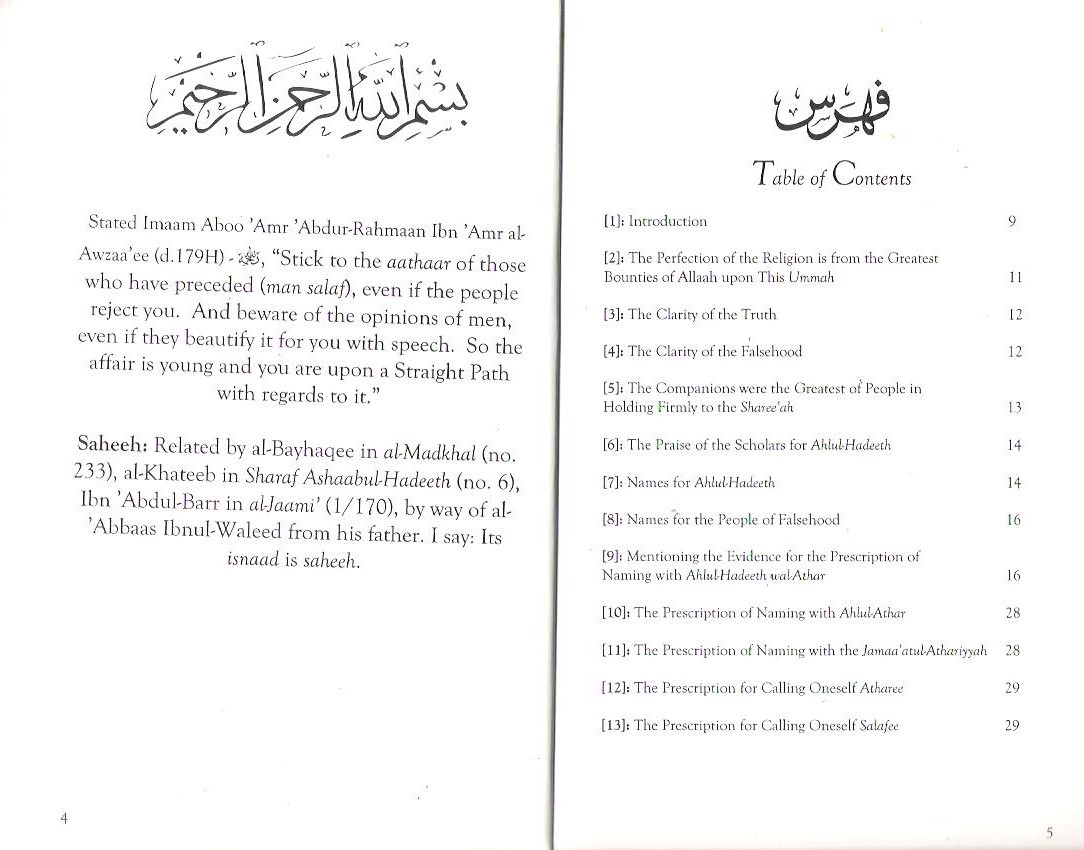 بسم الله الرحمن الرحيم
Stated Imaam Aboo 'Amr 'Abdur-Rahmaan Ibn 'Amr al-
Awzaa'ee (d.179H) - , "Stick to the aathaar of those
who have preceded (man salaf), even if the people
reject you. And beware of the opinions of men,
even if they beautify it for you with speech. So the
affair is young and you are upon a Straight Path
with regards to it."
Saheeh: Related by al-Bayhaqee in al-Madkhal (no.
233), al-Khateeb in Sharaf Ashaabul-Hadeeth (no. 6),
Ibn 'Abdul-Barr in al-Jaami' (1/170), by way of al-
'Abbaas Ibnul-Waleed from his father. I say: Its
isnaad is saheeh.
4
فهرس
Table of Contents
[1]: Introduction 9
[2]: The Perfection of the Religion is from the Greatest
Bounties of Allaah upon This Ummah 11
[3]: The Clarity of the Truth 12
[4]: The Clarity of the Falsehood 12
[5]: The Companions were the Greatest of People in
Holding Firmly to the Sharee'ah 13
[6]: The Praise of the Scholars for Ahlul-Hadeeth 14
[7]: Names for Ahlul-Hadeeth 14
[8]: Names for the People of Falsehood 16
[9]: Mentioning the Evidence for the Prescription of
Naming with Ahlul-Hadeeth wal-Athar 16
[10]: The Prescription of Naming with Ahlul-Athar 28
[11]: The Prescription of Naming with the Jamaa'atul-Athariyyah 28
[12]: The Prescription for Calling Oneself Atharee 29
[13]: The Prescription for Calling Oneself Salafee 29
5